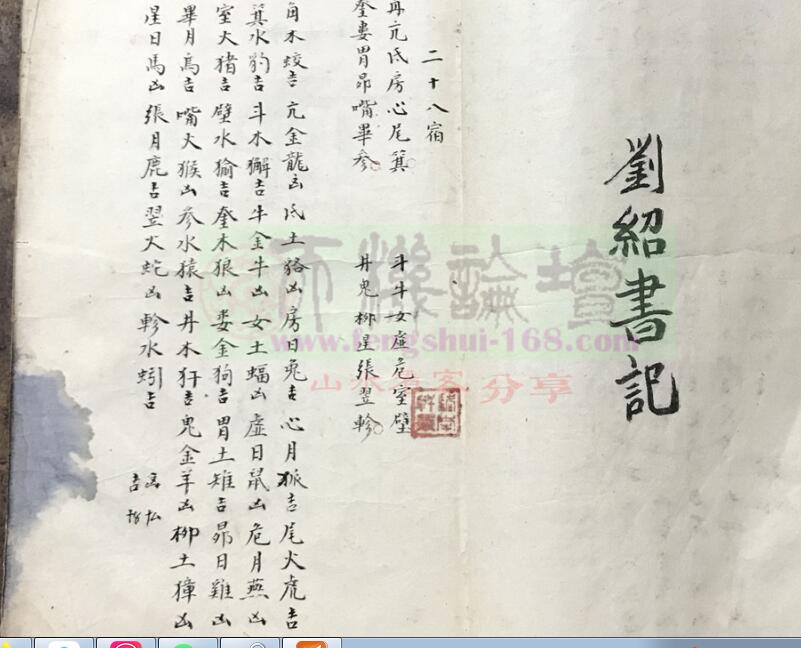 劉紹書記
二十八宿
角亢氐房心尾箕
斗牛女虛危室壁
奎婁胃昴嘴畢參
井鬼柳星張翌軫
角木蛟吉 亢金龍凶 氐土貉凶 房日兔吉 心月狐吉 尾火虎吉
箕水豹吉 斗木獬吉 牛金牛凶 女土蝠凶 虛日鼠凶 危月燕凶
室火猪吉 壁水㺄吉 奎木狼凶 娄金狗吉 胃土雉吉 昴日雞凶
畢月烏吉 嘴火猴凶 參水猿吉 井木犴吉 鬼金羊凶 柳土獐凶
星日馬凶 張月鹿吉 翌火蛇凶 軫水蚓吉
論壇
www.fengshui-168.com
山水 客 分享